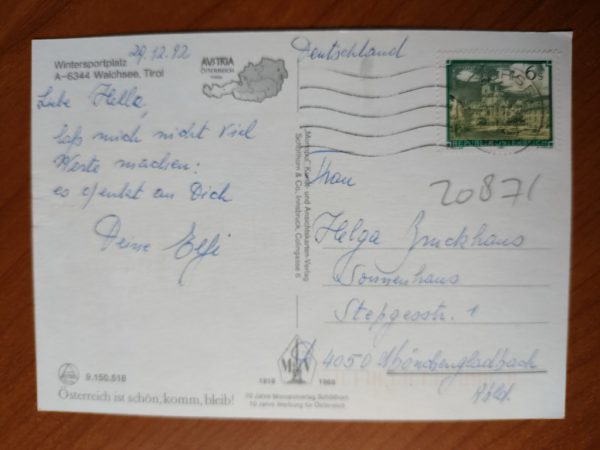 29.12.92
Wintersportplatz
A-6344 Walchsee, Tirol
AUSTRIA
ÖSTERREICH
Deutschland
6 S
REPUBLIK ÖSTERREICH
Liebe Hella,
laß mich nicht viel
Worte machen:
es denkt an Dich
Deine Elfi
Kunst- und Ansichtskarten-Verlag
Schöllhorn & Co., Innsbruck, Colingasse 6
Frau
20871
Helga Bruckhaus
Sonnenhaus
Stepgesstr. 1
4050 Mönchengladbach
9.150.518
Österreich ist schön, komm, bleib!
1919 1989
70 Jahre Monopolverlag Schöllhorn
70 Jahre Werbung für Österreich